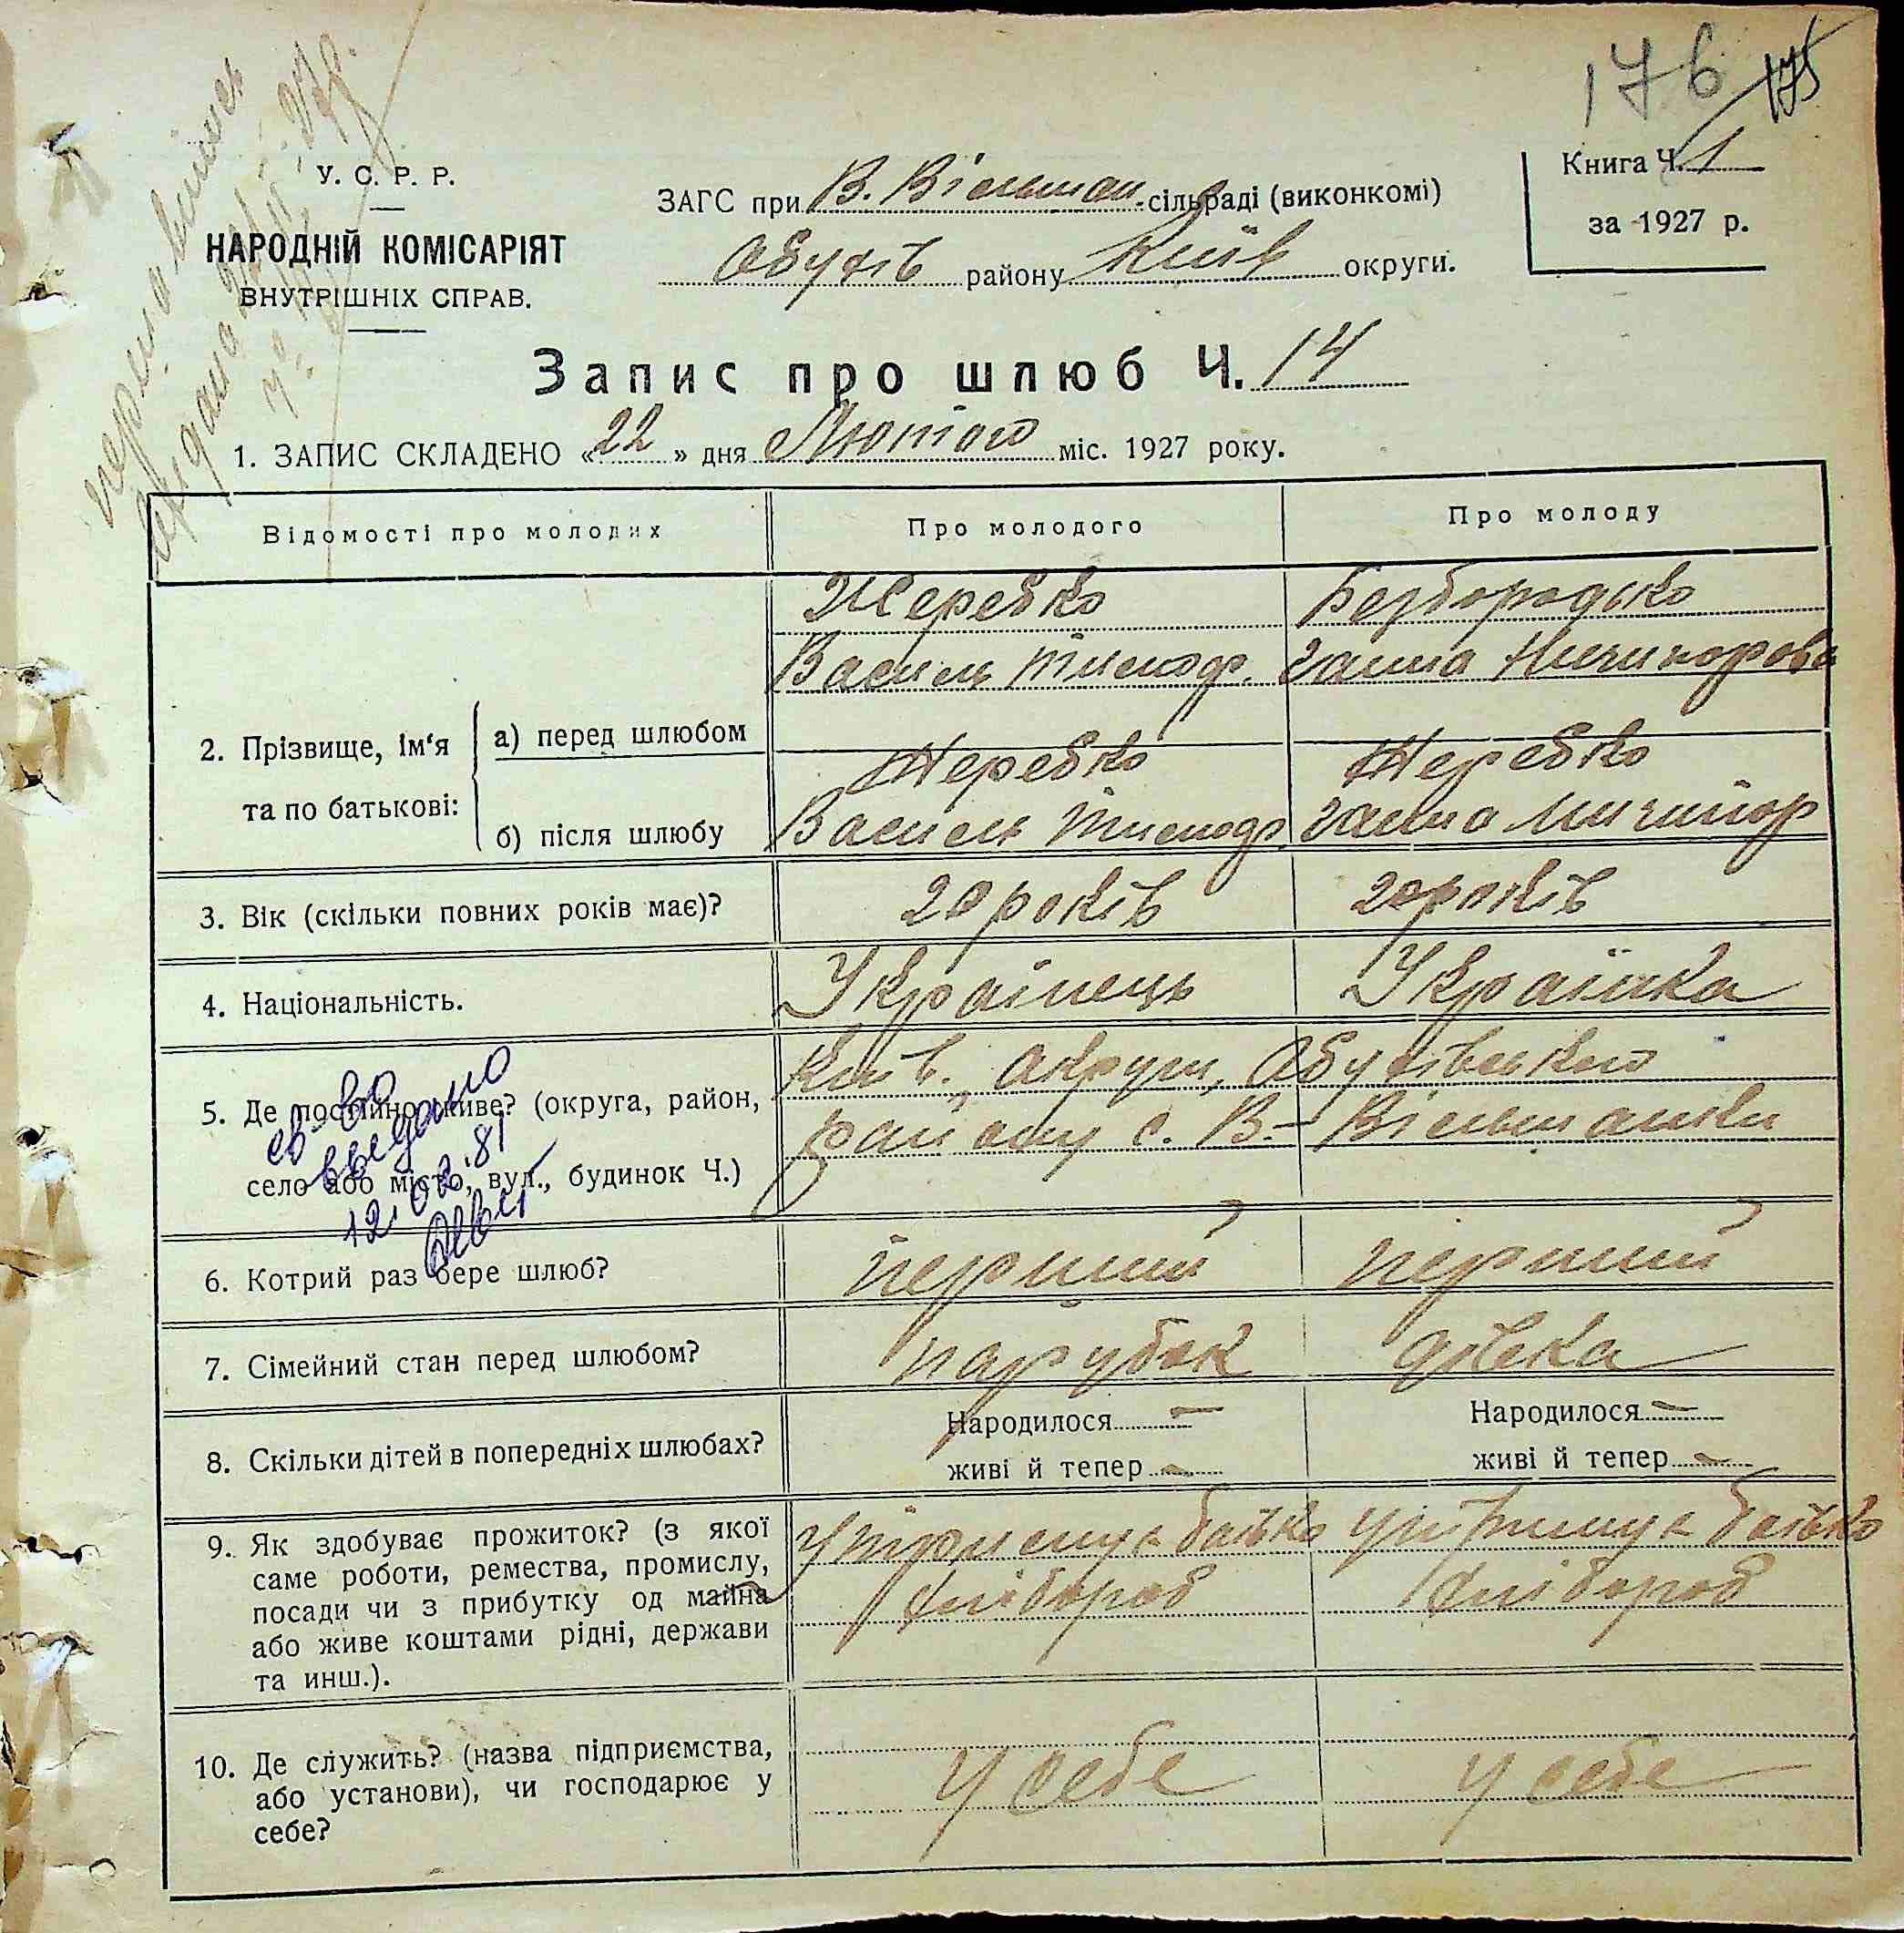 176 175
У. С. Р. Р.
НАРОДНІЙ КОМІСАРІЯТ
ВНУТРІШНІХ СПРАВ.
ЗАГС при В. Вільшан. сільраді (виконкомі)
Обухів району Київ округи.
Книга Ч. 1
за 1927 р.
Запис про шлюб Ч. 14
1. ЗАПИС СКЛАДЕНО «22» дня Лютого міс. 1927 року.
Відомості про молодих Про молодого Про молоду
2. Прізвище, ім‘я та по батькові:
а) перед шлюбом
Жеребко Безбородько
Василь Тимоф. Ганна Ничипорова
б) після шлюбу
Жеребко Жеребко
Василь Тимоф. Ганна Ничипор
3. Вік (скільки повних років має)? 20 років 20 років
4. Національність. Українець Українка
5. Де постійно живе? (округа, район,
село або місто, вул., будинок Ч.)
Київ. Округи, Обухівського
району с. В.-Вільшанки
св-во
выдано
12.02.81
6. Котрий раз бере шлюб? перший перший
7. Сімейний стан перед шлюбом? парубок дівка
8. Скільки дітей в попередніх шлюбах?
Народилося — Народилося —
живі й тепер — живі й тепер —
9. Як здобуває прожиток? (з якої
саме роботи, ремества, промислу,
посади чи з прибутку од майна
або живе коштами рідні, держави
та инш.).
Утримує батько утримує батько
хлібороб хлібороб
10. Де служить? (назва підприємства,
або установи), чи господарює у
себе?
У себе У себе